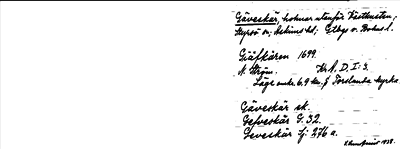 Gäveskär, holmar utanför Västkusten;
Styrsö sn; Askims hd; Gtbgs o. Bohus l.
Gräfkären 1699.
N. Ström. Kr. A. D. I: 3.
Läge under 6,9 km f Torslanda kyrka.
Gäveskär sk.
Gefveskär G. 32.
Geveskär Sj. 276 a.
1938.